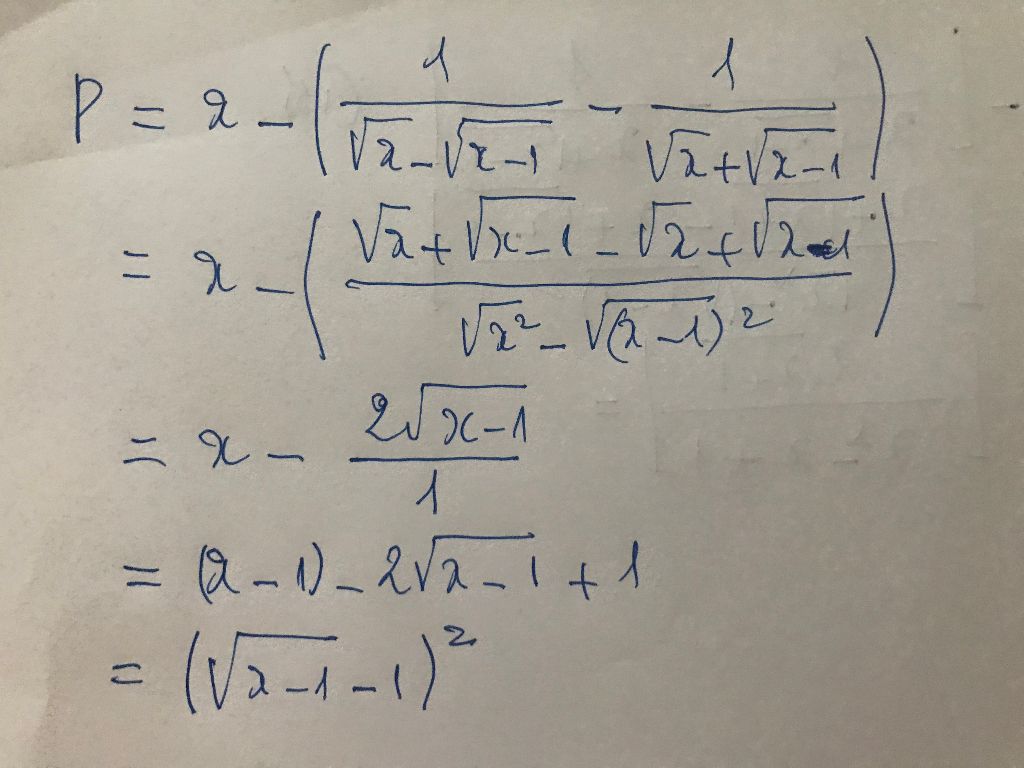 P = x - ( 1/(√x - √(x-1)) - 1/(√x + √(x-1)) )
= x - ( (√x + √(x-1) - √x + √(x-1)) / (√x² - √(x-1)²) )
= x - 2√(x-1)/1
= (x-1) - 2√(x-1) + 1
= (√(x-1) - 1)²